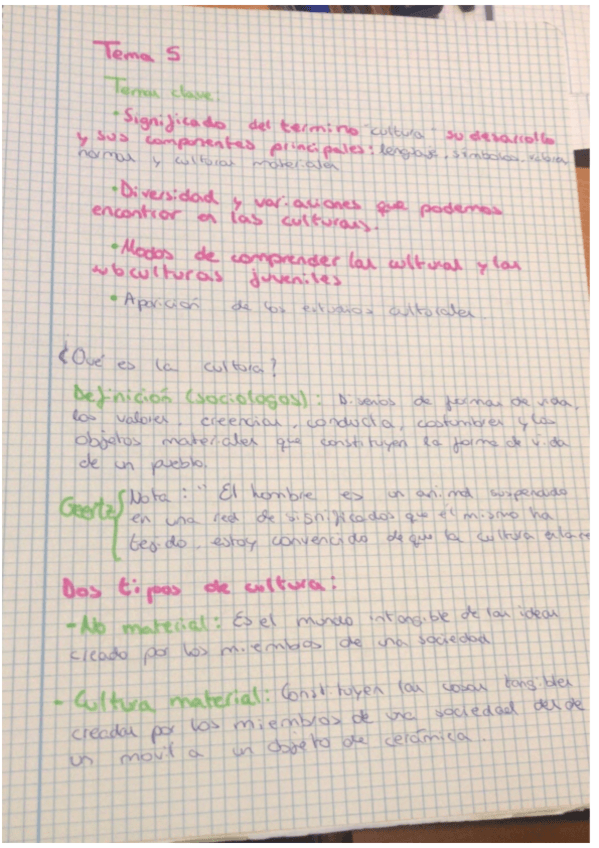 Tema 5
Temas clave:
• Significado del termino "cultura" su desarrollo
y sus componentes principales: lenguaje, símbolos, valores,
normas y culturas materiales
• Diversidad y variaciones que podemos
encontrar en las culturas.
• Modos de comprender las cultural y las
subculturas juveniles
• Aparición de los estudios culturales
¿Qué es la cultura?
Definición (sociologos): Diseños de formas de vida,
los valores, creencias, conducta, costumbres y los
objetos materiales que constituyen la forma de vida
de un pueblo.
Geertz Nota: "El hombre es un animal suspendido
en una red de significados que el mismo ha
tejido, estoy convencido de que la cultura
Dos tipos de cultura:
- No material: Es el mundo intangible de las ideas
creado por los miembros de una sociedad
- Cultura material: Constituyen las cosas tangibles
creadas por los miembros de una sociedad desde
un movil a un objeto de cerámica.